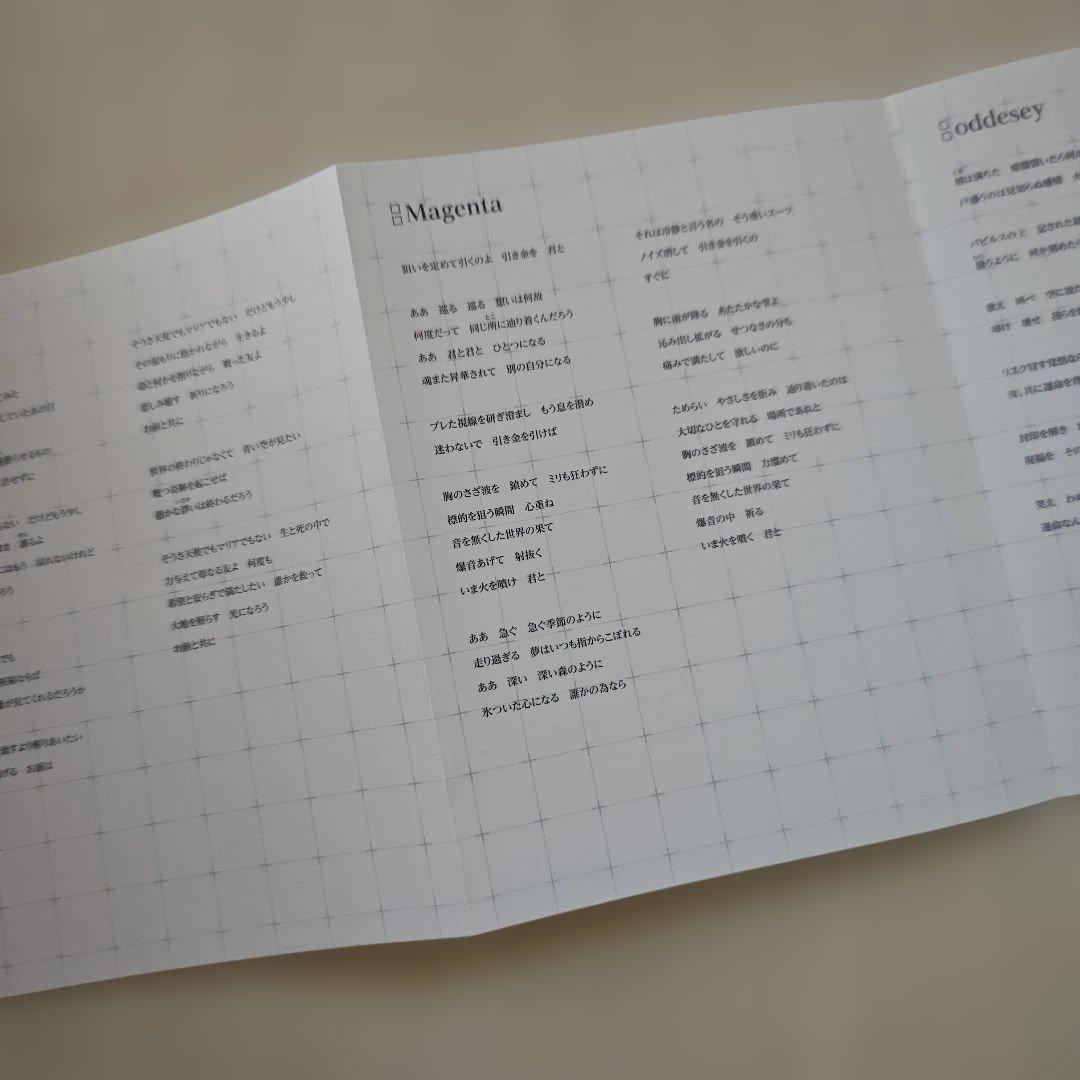 そうさ天使でもマリアでもない だけどもう少し
その温もりに抱かれながら 生きるよ
命と何かを削りながら 戦った友よ
悲しみ癒す 祈りになろう
お前と共に
世界の終わりじゃなくて 青い空が見たい
幾つ奇跡を起こせば
愚かな諍いは終わるだろう
そうさ天使でもマリアでもない 生と死の中で
力与えて母なる友よ 何度も
希望と安らぎで満たしたい 誰かを救って
大地を照らす 光になろう
お前と共に
Magenta
狙いを定めて引くのよ 引き金を 君と
ああ 巡る 巡る 想いは何故
何度だって 同じ所に辿り着くんだろう
ああ 君と君と ひとつになる
魂また昇華されて 別の自分になる
ブレた視線を研ぎ澄まし もう息を潜め
迷わないで 引き金を引けば
胸のさざ波を 鎮めて ミリも狂わずに
標的を狙う瞬間 心重ね
音を無くした世界の果て
爆音あげて 射抜く
いま火を噴け 君と
ああ 急ぐ 急ぐ季節のように
走り過ぎる 夢はいつも指からこぼれる
ああ 深い 深い森のように
氷ついた心になる 誰かの為なら
それは冷静と言う名の そう重いスーツ
ノイズ消して 引き金を引くの
すぐに
胸に雨が降る あたたかな雫よ
沁み出し拡がる せつなさの分も
痛みで満たして 欲しいのに
ためらい やさしさを拒み 辿り着いたのは
大切なひとを守れる 場所であれと
胸のさざ波を 鎮めて ミリも狂わずに
標的を狙う瞬間 力溜めて
音を無くした世界の果て
爆音の中 祈る
いま火を噴く 君と
oddesey
戸惑うのは見知らぬ感情
パピルスの上 記された